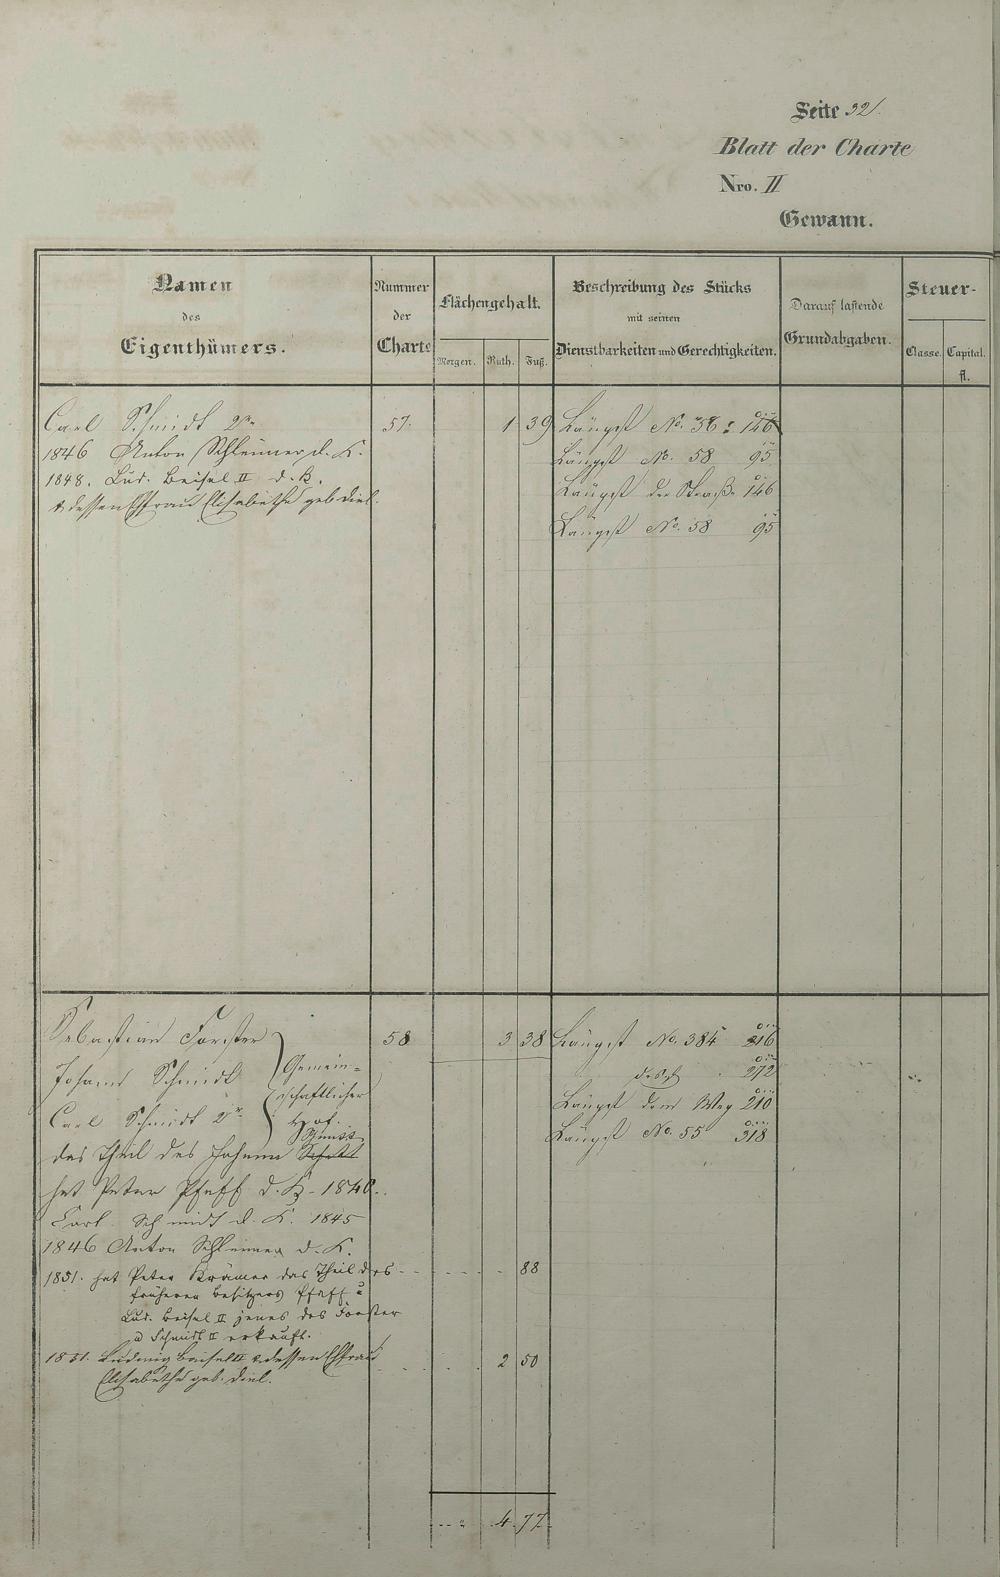 Seite 32.
Blatt der Charte
Nro. II
Gewann.
Namen des Eigenthümers.
Nummer der Charte
Flächengehalt.
Morgen. Ruth. Fuß.
Beschreibung des Stücks mit seinen Dienstbarkeiten und Gerechtigkeiten.
Darauf lastende Grundabgaben.
Steuer-
Classe. Capital.
fl.
Carl Schmidt 2r 57. 1 39 Längst No. 56 : 146
1846 Anton Schleimer d. K. Längst No. 58 95
1848. Lud. Beisel II d. K. Längst der Straße 146
& dessen Ehfrau Elisabetha geb. Diel. Längst No. 58 95
Sebastian Forster 58 3 38 Längst No. 384 216
Johann Schmidt Gemein= 272
Carl Schmidt 2r schaftlicher Hof. Längst dem Weg 210
Längst No. 55 318
das Theil des Johann Schmidt
hat Peter Pfaff d. K. 1840.
Carl Schmidt d. K. 1845
1846 Anton Schleimer d. K.
1851. hat Peter Krämer das Theil des 88
früheren Besitzers Pfaff u
Lud. Beisel II jenes des Forster
u Schmidt II erkauft.
1851. Ludwig Beisel II & dessen Ehfrau 2 50
Elisabetha geb. Diel.
4. 77